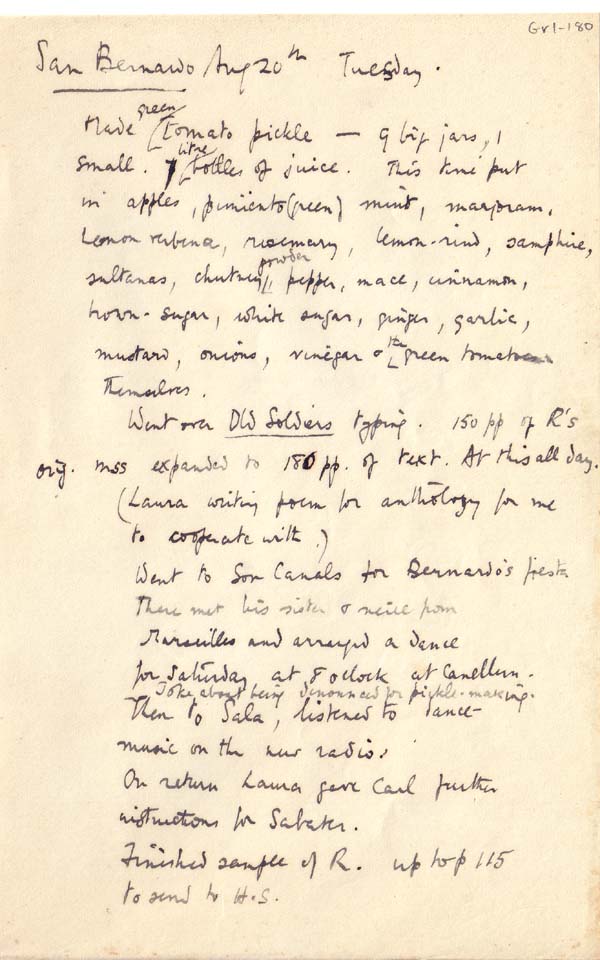 Gr1-180
San Bernardo Aug 20th Tuesday.
Made green tomato pickle — 9 big jars, 1
small. 7 litre bottles of juice. This time put
in apples, pimiento (green) mint, marjoram,
Lemon verbena, rosemary, lemon-rind, samphire,
sultanas, chutney powder, pepper, mace, cinnamon,
brown-sugar, white sugar, ginger, garlic,
mustard, onions, vinegar & the green tomatoes
themselves.
Went over Old Soldiers typing. 150 pp of R's
orig. mss expanded to 180 pp. of text. At this all day.
(Laura writing poem for anthology for me
to cooperate with.)
Went to Son Canals for Bernardo's fiesta
There met his sister & neice from
Marseilles and arranged a dance
for Saturday at 8 oclock at Canellun.
Joke about being denounced for pickle-making.
Then to Sala, listened to dance
music on the new radio.
On return Laura gave Carl further
instructions for Sabater.
Finished sample of R. up to p 115
to send to H.S.